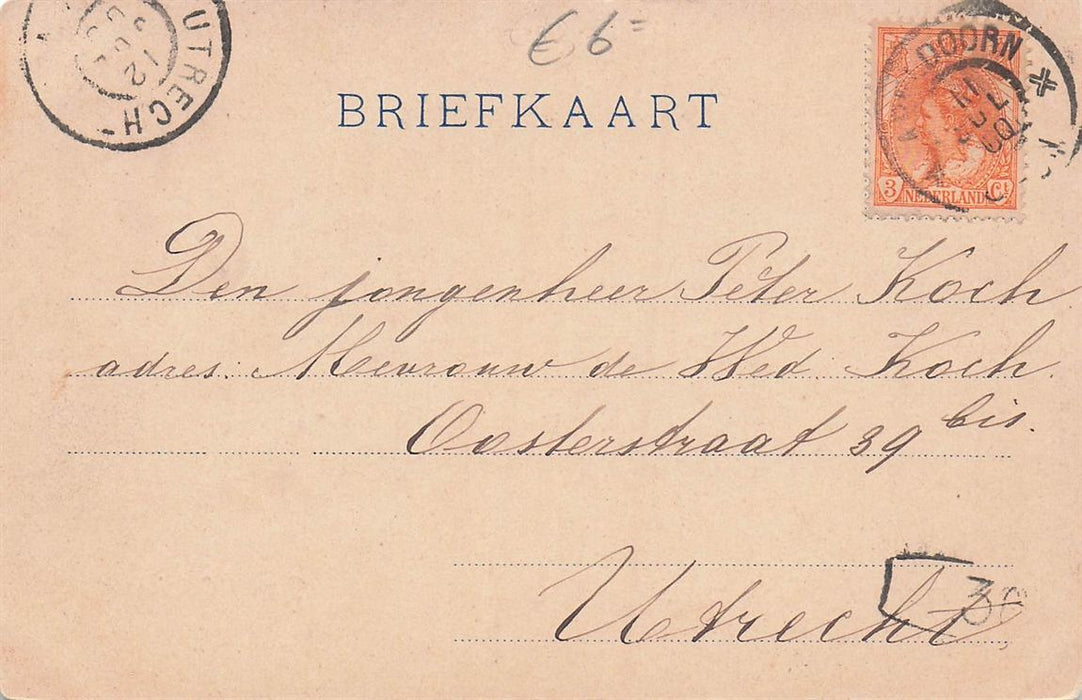 UTRECHT
12
€ 6=
BRIEFKAART
APELDOORN
3 CT
NEDERLAND
Den jongenheer Peter Koch
adres: Mevrouw de Wed. Koch.
Oosterstraat 39 bis.
Utrecht